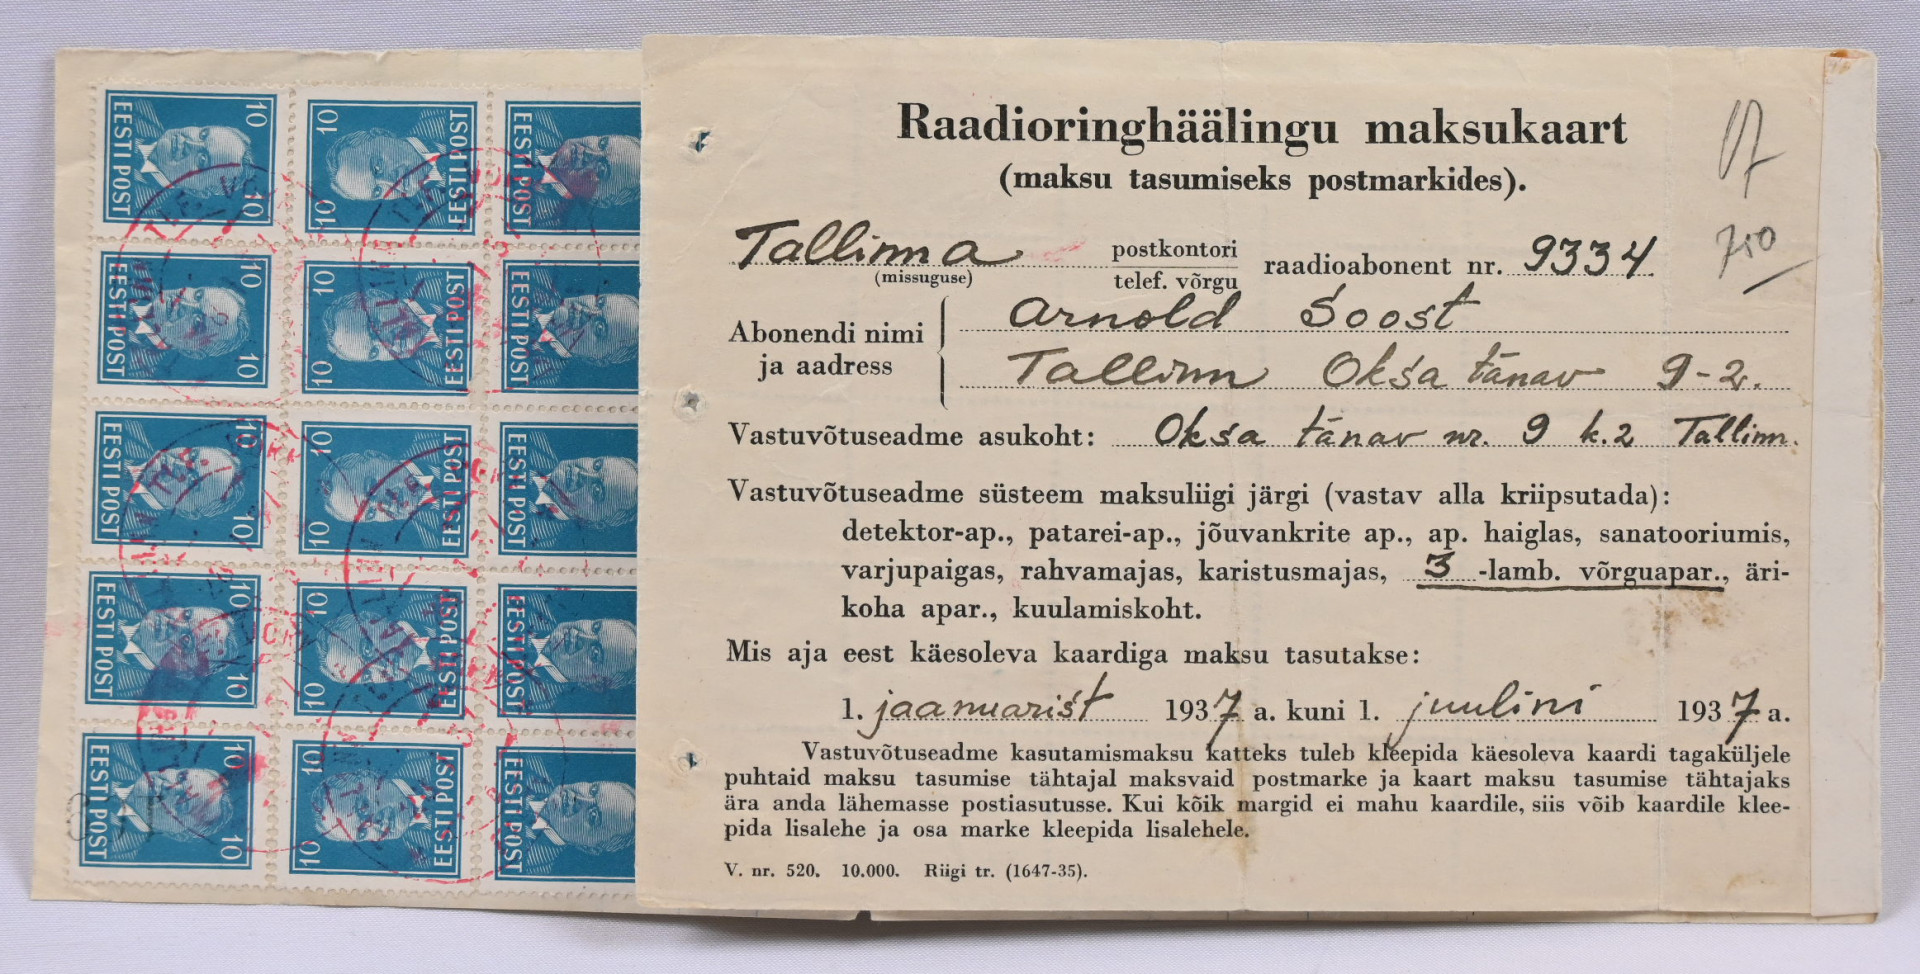 10 EESTI POST 10
10 EESTI POST 10
EESTI POST
10 EESTI POST 10
10 EESTI POST 10
EESTI POST
10 EESTI POST 10
10 EESTI POST 10
EESTI POST
10 EESTI POST 10
10 EESTI POST 10
EESTI POST
10 EESTI POST 10
10 EESTI POST 10
EESTI POST
Raadioringhäälingu maksukaart
(maksu tasumiseks postmarkides).
Tallinna postkontori raadioabonent nr. 9334
(missuguse) telef. võrgu
750
Abonendi nimi Arnold Soost
ja aadress Tallinn Oksa tänav 9-2.
Vastuvõtuseadme asukoht: Oksa tänav nr. 9 k.2 Tallinn.
Vastuvõtuseadme süsteem maksuliigi järgi (vastav alla kriipsutada):
detektor-ap., patarei-ap., jõuvankrite ap., ap. haiglas, sanatooriumis,
varjupaigas, rahvamajas, karistusmajas, 3 -lamb. võrguapar., äri-
koha apar., kuulamiskoht.
Mis aja eest käesoleva kaardiga maksu tasutakse:
1. jaanuarist 1937 a. kuni 1. juulini 1937 a.
Vastuvõtuseadme kasutamismaksu katteks tuleb kleepida käesoleva kaardi tagaküljele
puhtaid maksu tasumise tähtajal maksvaid postmarke ja kaart maksu tasumise tähtajaks
ära anda lähemasse postiasutusse. Kui kõik margid ei mahu kaardile, siis võib kaardile klee-
pida lisalehe ja osa marke kleepida lisalehele.
V. nr. 520. 10.000. Riigi tr. (1647-35).